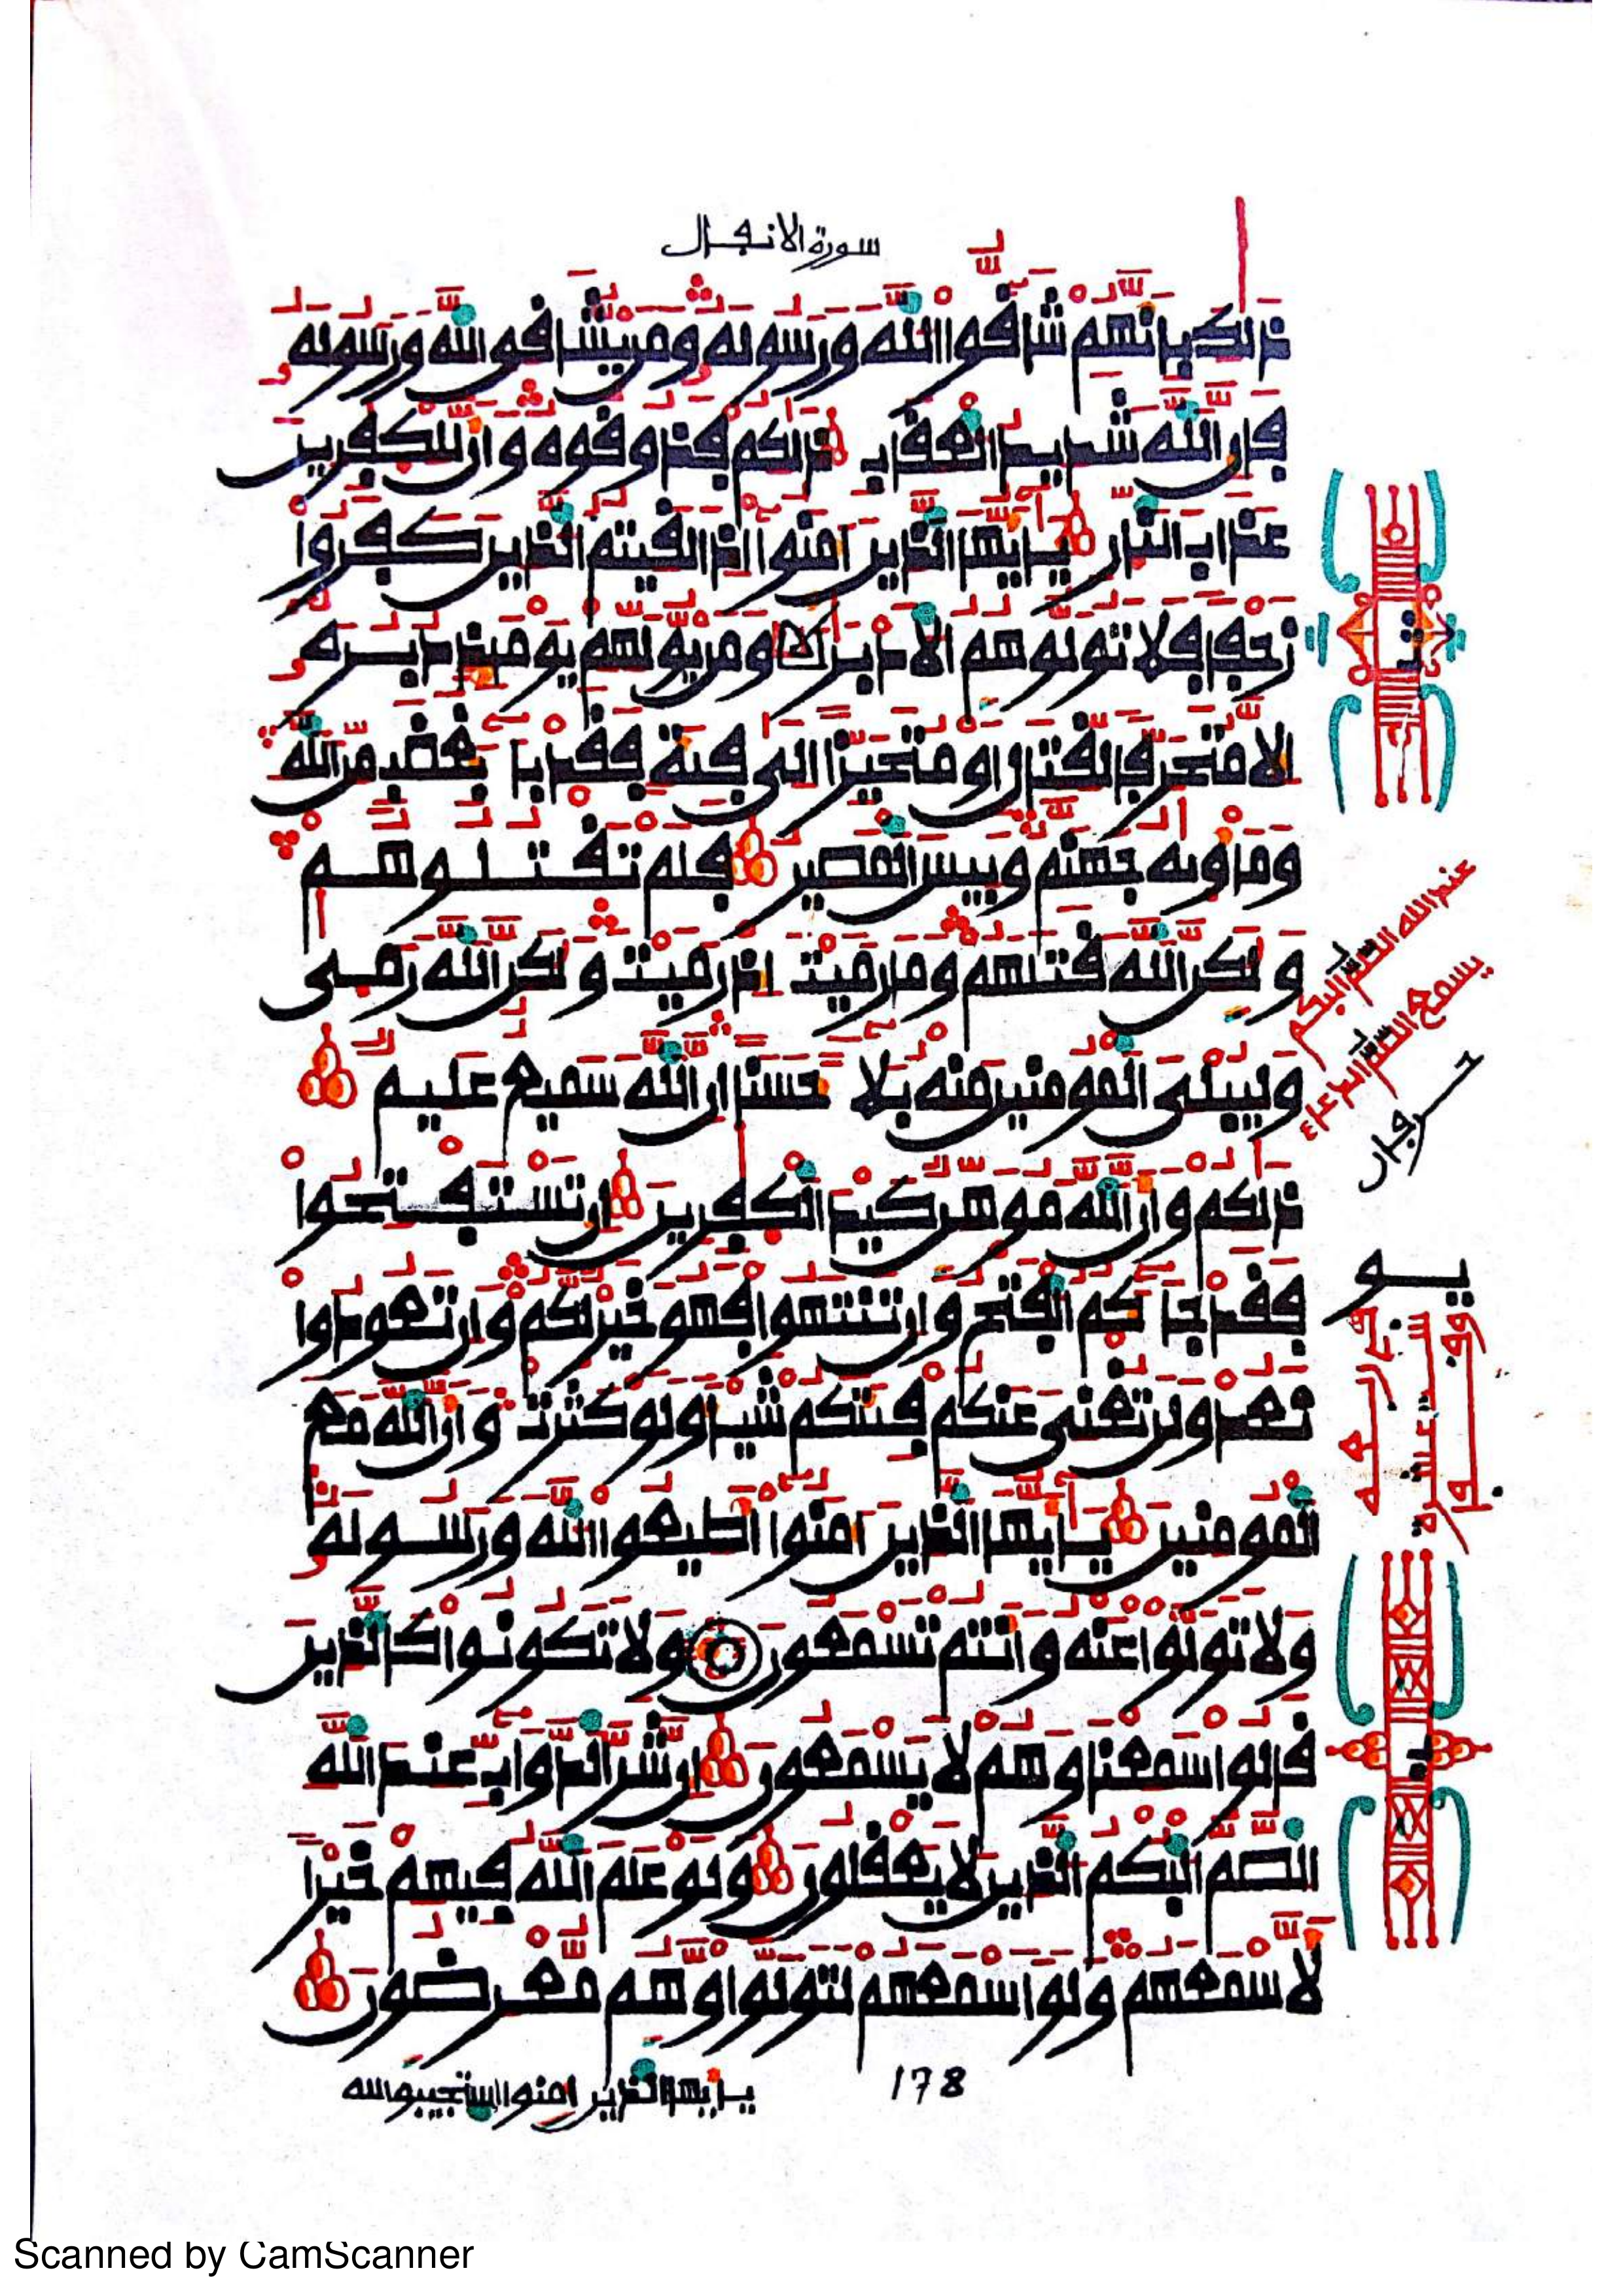 سورة الانفال
ذلك بانهم شاقوا الله ورسوله ومن يشاقق الله ورسوله
فإن الله شديد العقاب ذلكم فذوقوه وأن للكفرين
عذاب النار يأيها الذين امنوا إذا لقيتم الذين كفروا
زحفا فلا تولوهم الادبر ومن يولهم يومئذ دبره
إلا متحرفا لقتال او متحيزا الى فئة فقد باء بغضب من الله
ومأويه جهنم وبيس المصير فلم تقتلوهم
ولكن الله قتلهم وما رميت إذ رميت ولكن الله رمى
وليبلي المومنين منه بلاء حسنا إن الله سميع عليم
ذلكم وأن الله موهن كيد الكفرين إن تستفتحوا
فقد جاءكم الفتح وإن تنتهوا فهو خير لكم وإن تعودوا
نعد ولن تغني عنكم فئتكم شيئا ولو كثرت وأن الله مع
المومنين يأيها الذين امنوا أطيعوا الله ورسوله
ولا تولوا عنه وأنتم تسمعون ولا تكونوا كالذين
قالوا سمعنا وهم لا يسمعون إن شر الدواب عند الله
الصم البكم الذين لا يعقلون ولو علم الله فيهم خيرا
لأسمعهم ولو اسمعهم لتولوا وهم معرضون
يأيها الذين امنوا استجيبوا لله
178
عند الله الصم البكم
يسمع الصم الدعاء
حرفان
Scanned by CamScanner